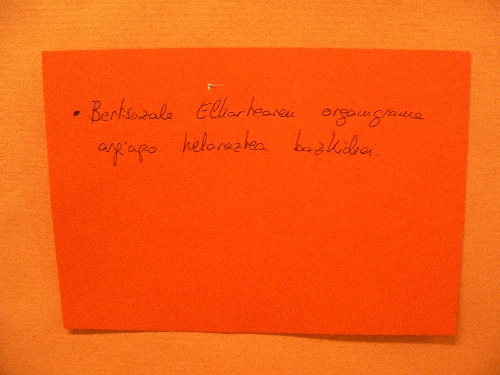 • Bertsozale Elkartearen organigrama
argiago helaraztea bazkideei.